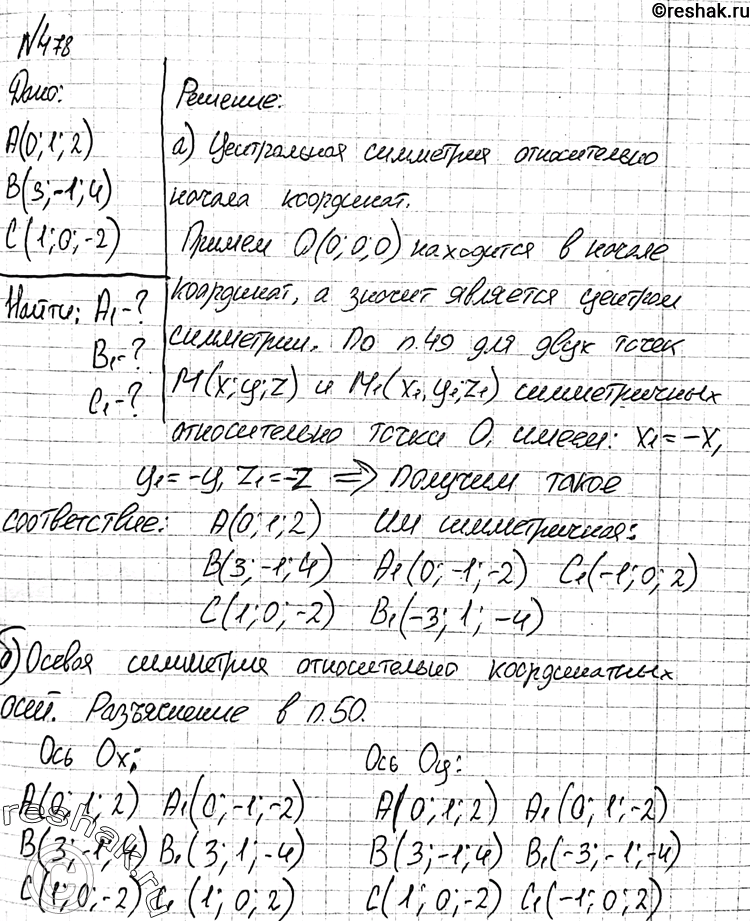 ©reshak.ru
№478
Дано:
A(0; 1; 2)
B(3; -1; 4)
C(1; 0; -2)
Найти: A₁-?
B₁-?
C₁-?
Решение:
а) Центральная симметрия относительно
начала координат.
Примем O(0; 0; 0) находится в начале
координат, а значит является центром
симметрии. По п.49 для двух точек
M(x; y; z) и M₁(x₁, y₁; z₁) симметричных
относительно точки O, имеем: x₁=-x,
y₁=-y, z₁=-z => Получим такое
соответствие: A(0; 1; 2) Им симметричная:
B(3; -1; 4) A₁(0; -1; -2) C₁(-1; 0; 2)
C(1; 0; -2) B₁(-3; 1; -4)
б) Осевая симметрия относительно координатных
осей. Разъяснение в п.50.
Ось Ox: Ось Oy:
A(0; 1; 2) A₁(0; -1; -2) A(0; 1; 2) A₁(0; 1; -2)
B(3; -1; 4) B₁(3; 1; -4) B(3; -1; 4) B₁(-3; -1; -4)
C(1; 0; -2) C₁(1; 0; 2) C(1; 0; -2) C₁(-1; 0; 2)
reshak.ru
©